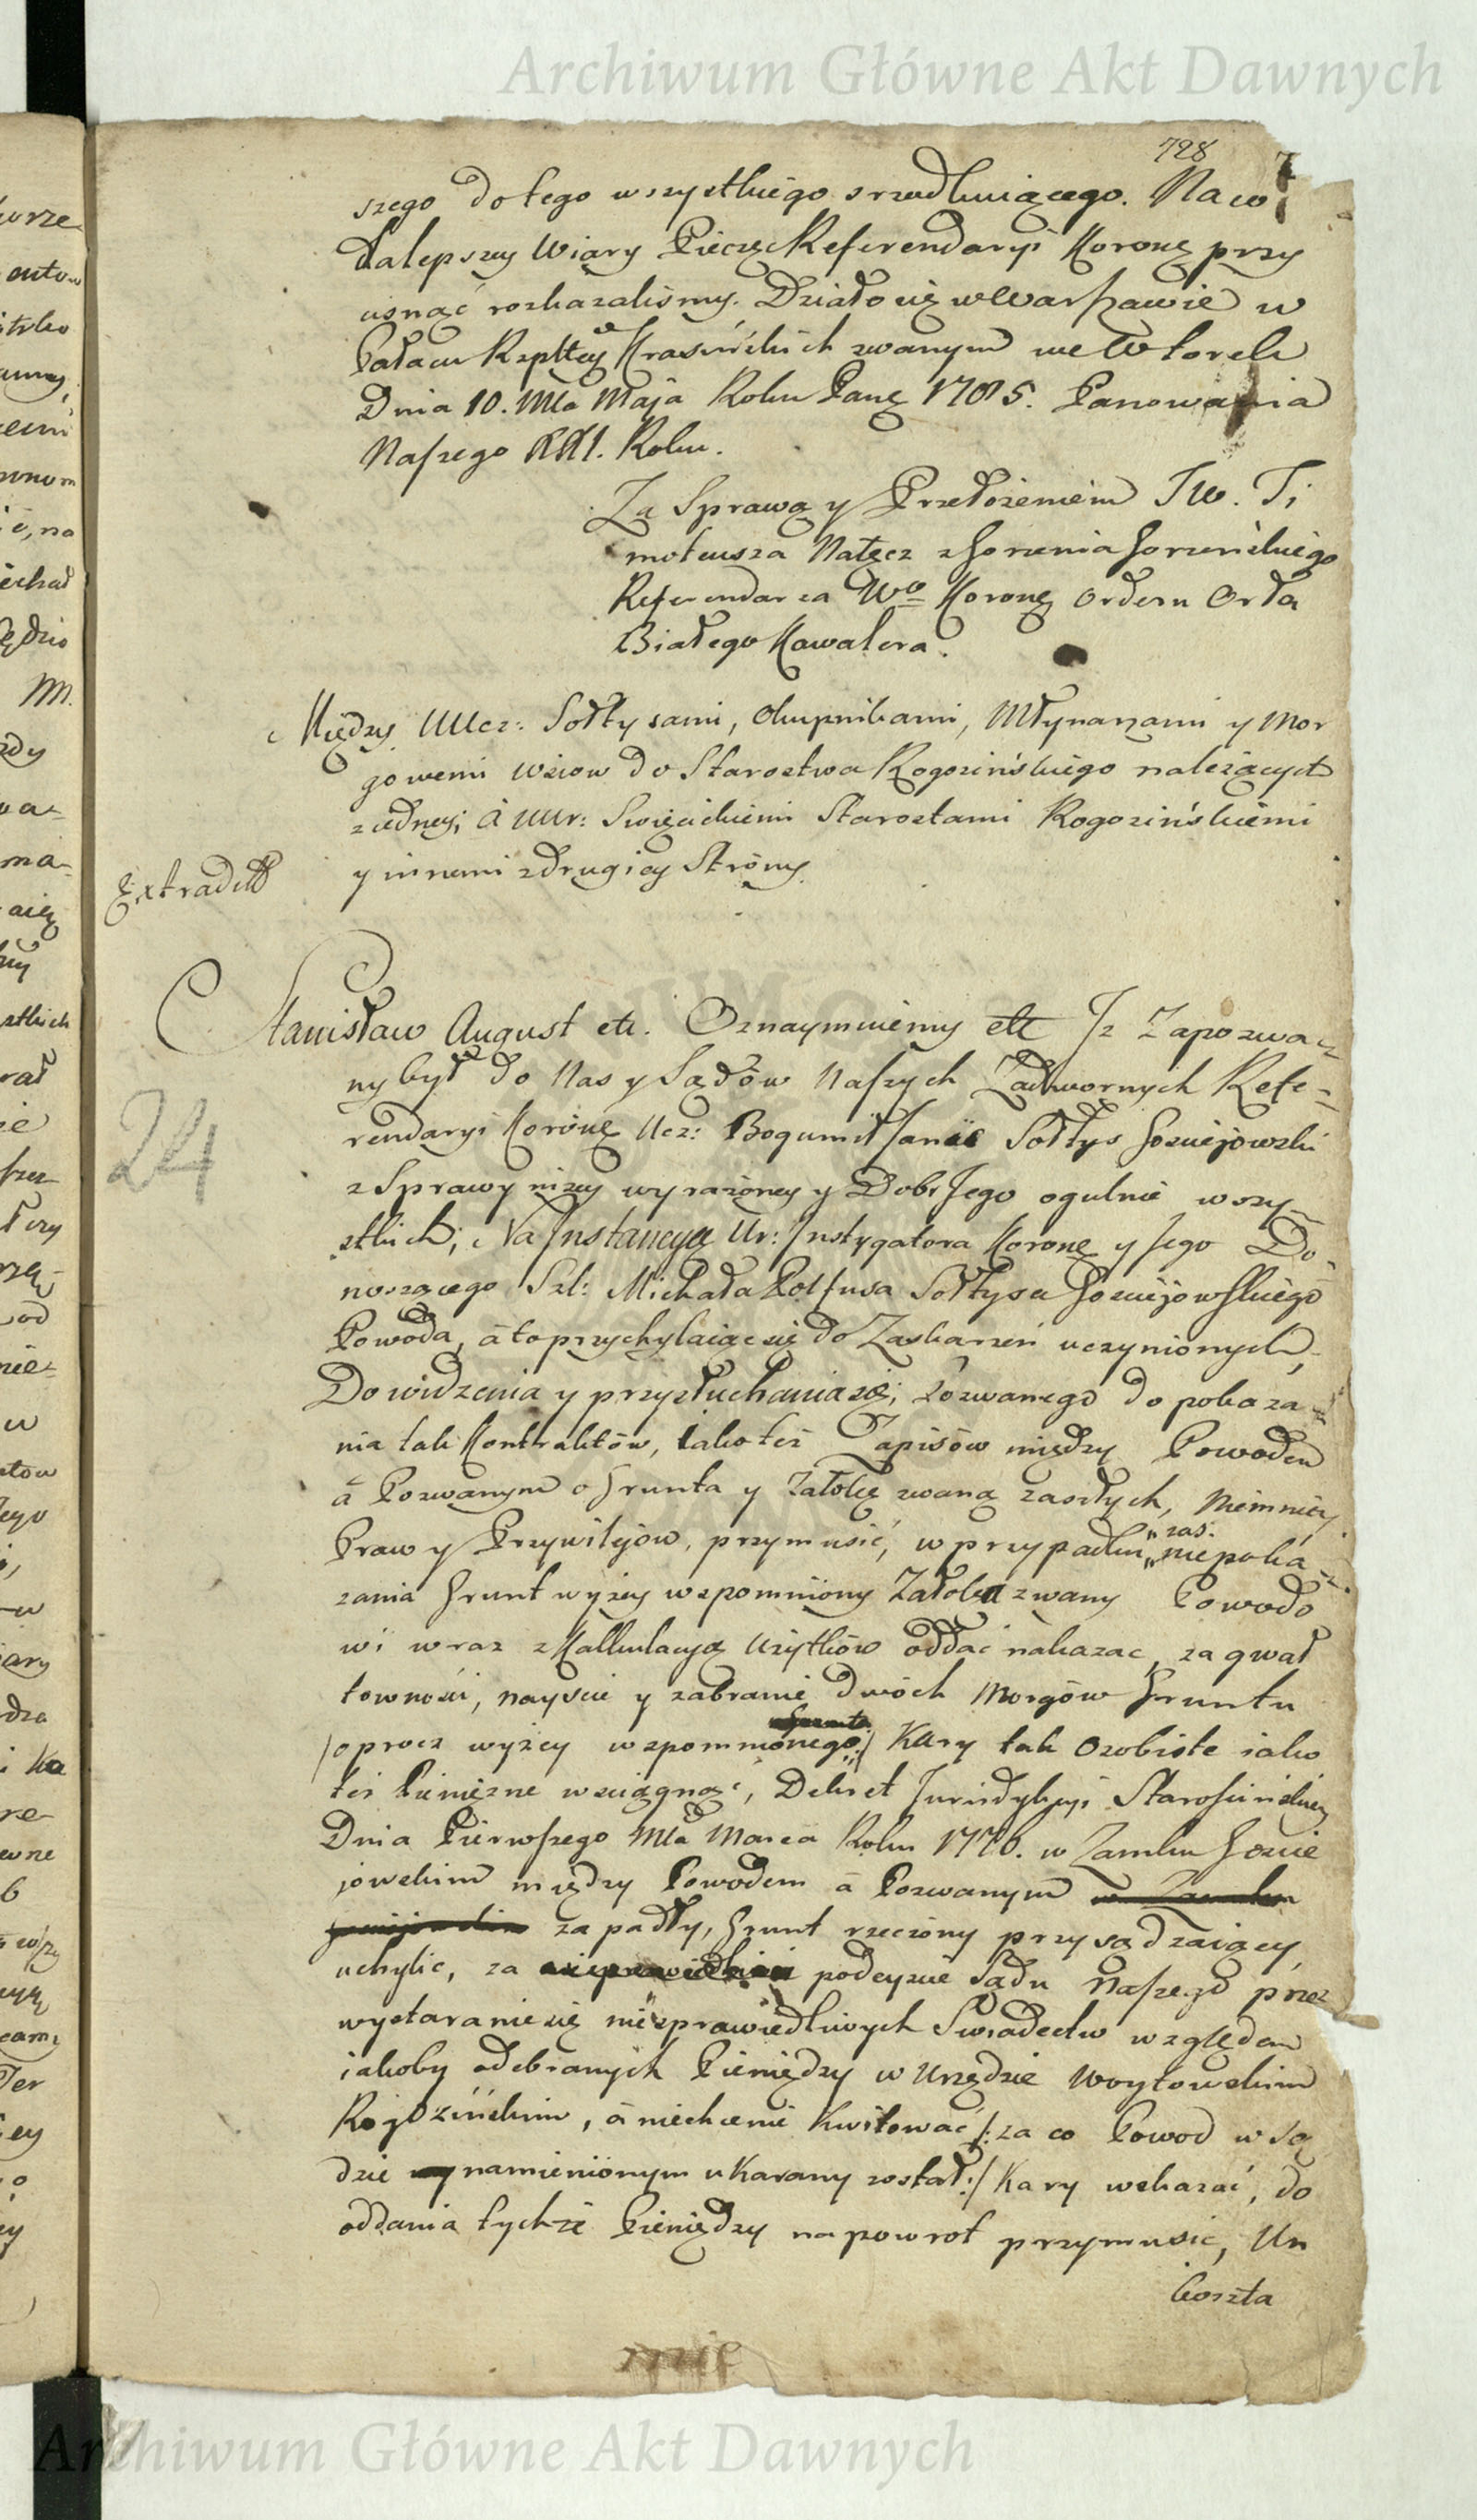 Archiwum Główne Akt Dawnych
728
szego do tego wszystkiego sciągaiącego. Na co
dalepszey Wiary Pieczęć Referendaryi Koronę przy
cisnąć rozkazaliśmy. Działo się w Warszawie w
Pałacu Rzpltey Krasińskich zwanym we Wtorek
Dnia 10. Mca Maja Roku Pańg 1785. Panowania
Naszego XXI. Roku.
Za Sprawą y Przełożeniem JW. Ty
moteusza Nałęcz z Gorzenia Gorzeńskiego
Referendarza Wo Koronę Orderu Orła
Białego Kawalera.
Między UUcz: Sołtysami, Okupnikami, Młynarzami y Mor
gowemi wsiow do Starostwa Rogozińskiego należących
z iedney; á UUr: Swięcickiemi Starostami Rogozińskiemi
y innemi z drugiey Strony.
Extradit
Stanisław August etc. Oznaymuiemy etc Jz Zapozwa=
ny był do Nas y Sądów Naszych Zadwornych Refe=
rendaryi Koronę Ucz: Bogumił Janic Sołtys Gosciejowski
z Sprawy niżey wyrażoney y Dobr Jego ogulnie wszy=
stkich; Na Jnstancyą Ur: Jnstygatora Koronę y Jego Do=
noszącego Szl: Michała Polfusa Sołtysa Gosciejowskiego
Powoda, á to przychylaiąc się do Zaskarżeń uczynionych,
Do widzenia y przysłuchania się; Pozwanego do pokaza=
nia tak Kontraktów, iako też Zapisów między Powodem
á Pozwanym o Grunta y Zatokę zwaną zaszłych, niemniey
Praw y Przywilejów, przymusić, w przypadku zaś niepoka=
zania Grunt wyżey wspomniony Zatoka zwany Powodo
wi wraz z Kalkulacyą Użytków oddać nakazac, za gwał
towności, nayscie y zabranie dwóch Morgów Gruntu
/oprocz wyżey wspomnionego:/ Kary tak Osobiste iako
też Pieniężne wsciągnąć, Dekret Jurisdykcyi Starościńskiey
Dnia Pierwszego Mca Marca Roku 1776. w Zamku Goscie
jowskim między Powodem á Pozwanym w Zamku
zapadły, Grunt rzeczony przysądzaiący,
uchylic, za podeyscie Sądu Naszego przez
wystaranie się niesprawiedliwych Swiadectw względem
iakoby odebranych Pieniędzy w Urzędzie Woytowskim
Rogozińskim, á niechcenie Kwitować /:za co Powod w Są
dzie namienionym ukarany został:/ Kary wskazać, do
oddania tychże Pieniędzy na powrot przymusic, Un
koszta
24
Archiwum Główne Akt Dawnych